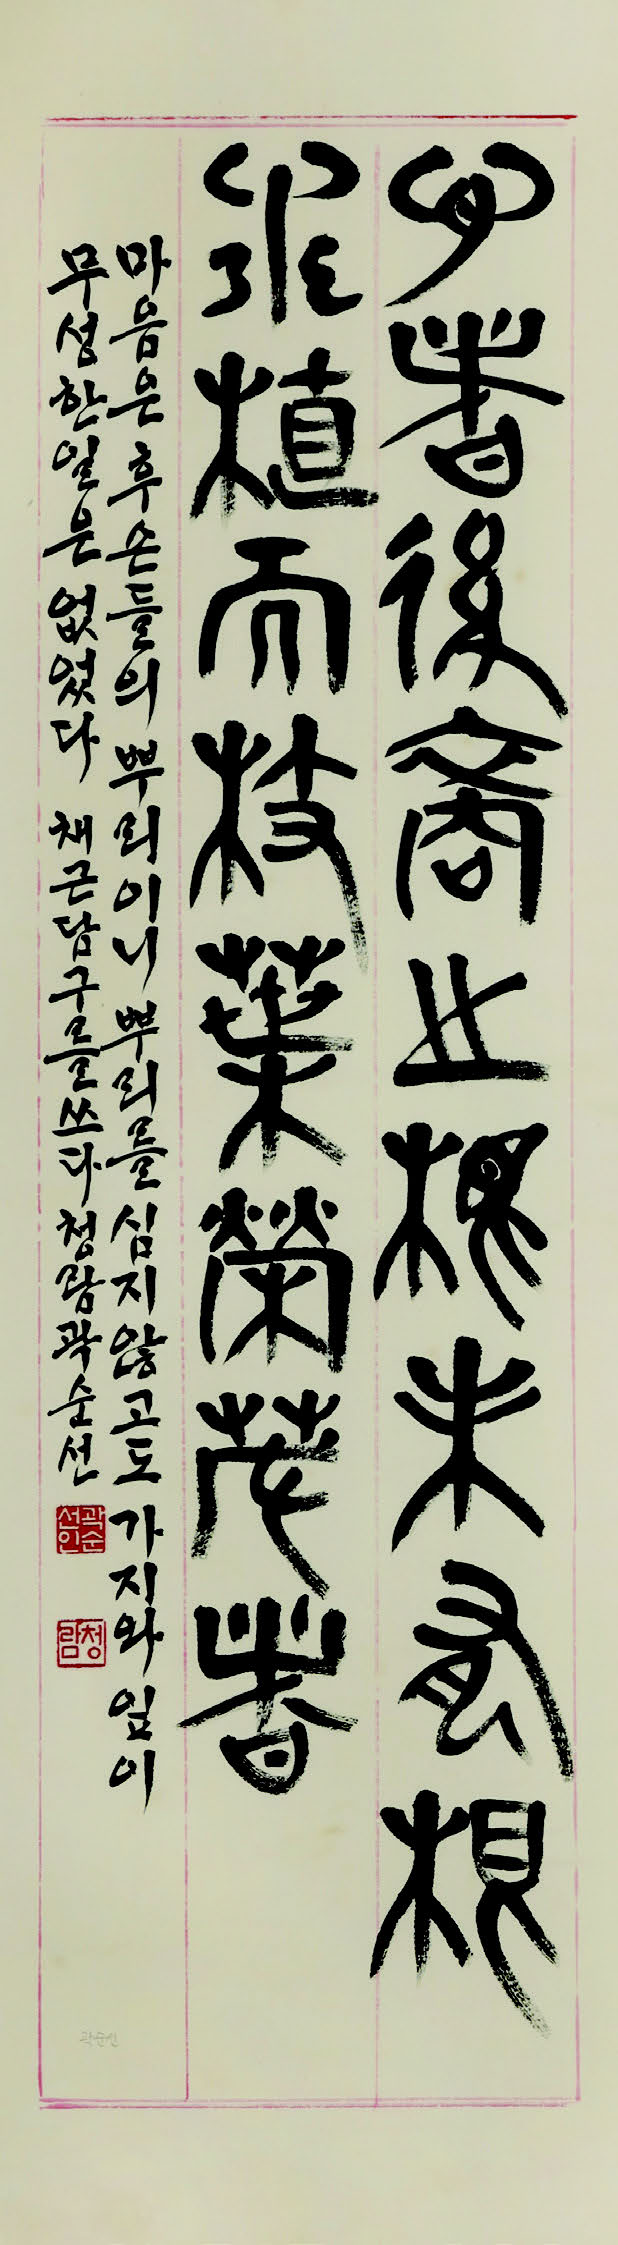 心者後裔之根未有根
不植而枝葉榮茂者
마음은 후손들의 뿌리이니 뿌리를 심지않고도 가지와 잎이
무성한 일은 없었다 채근담구를 쓰다 청람 곽순선
곽순선인
청람
곽순선